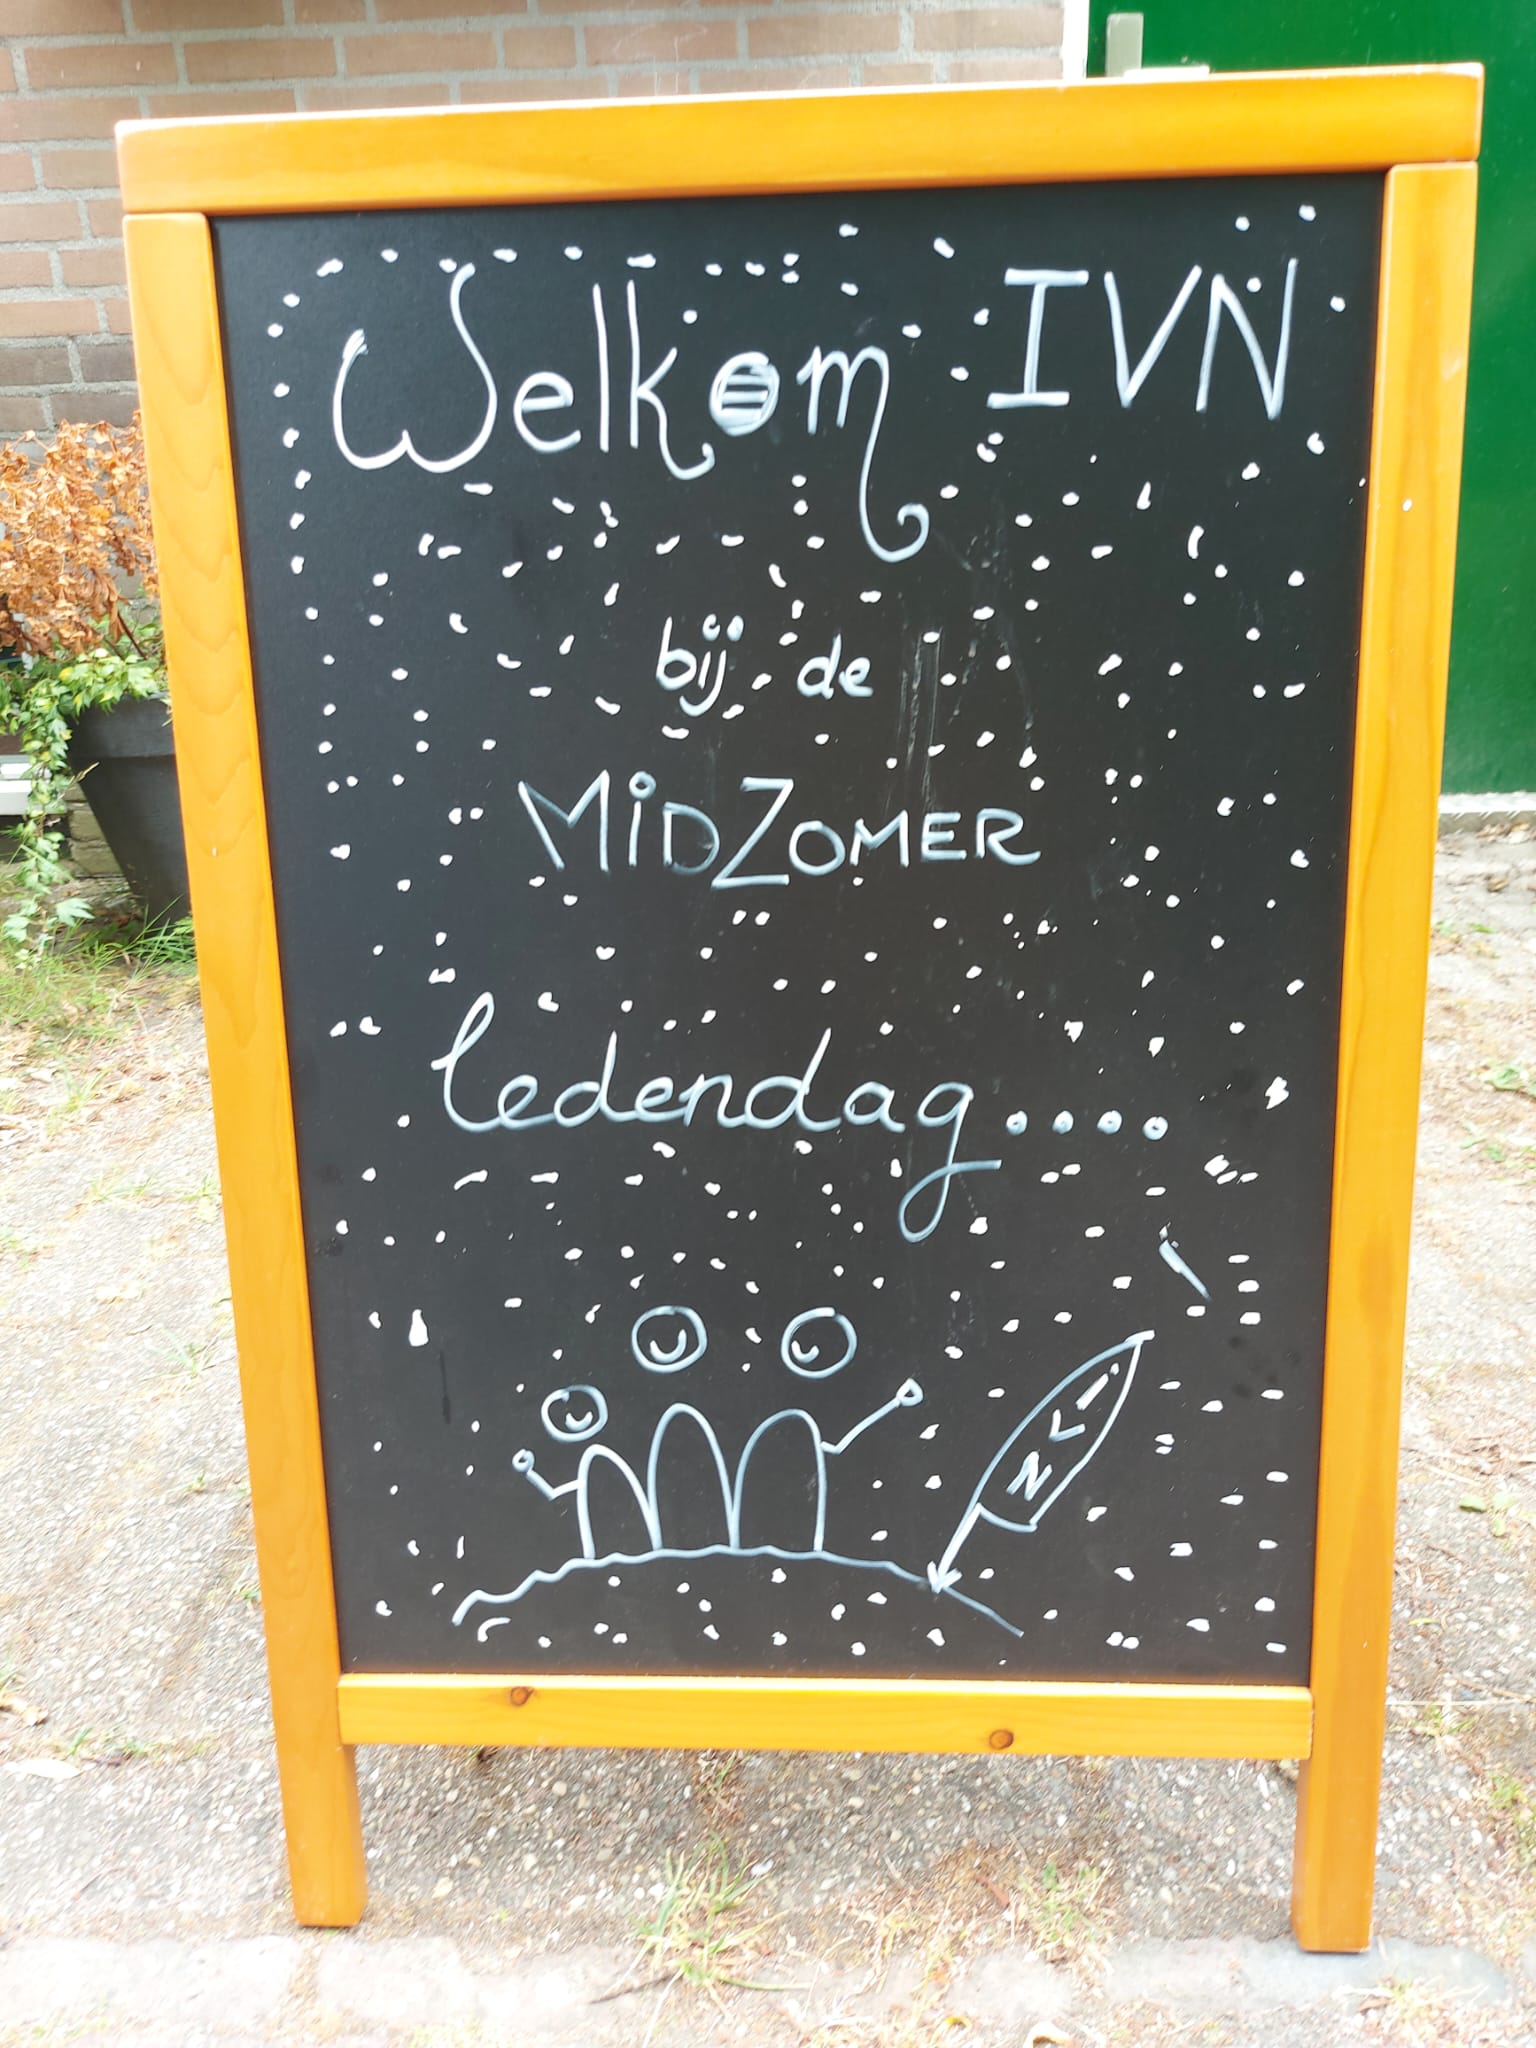 Welkom IVN
bij de
MiDZOMER
ledendag....
IVN